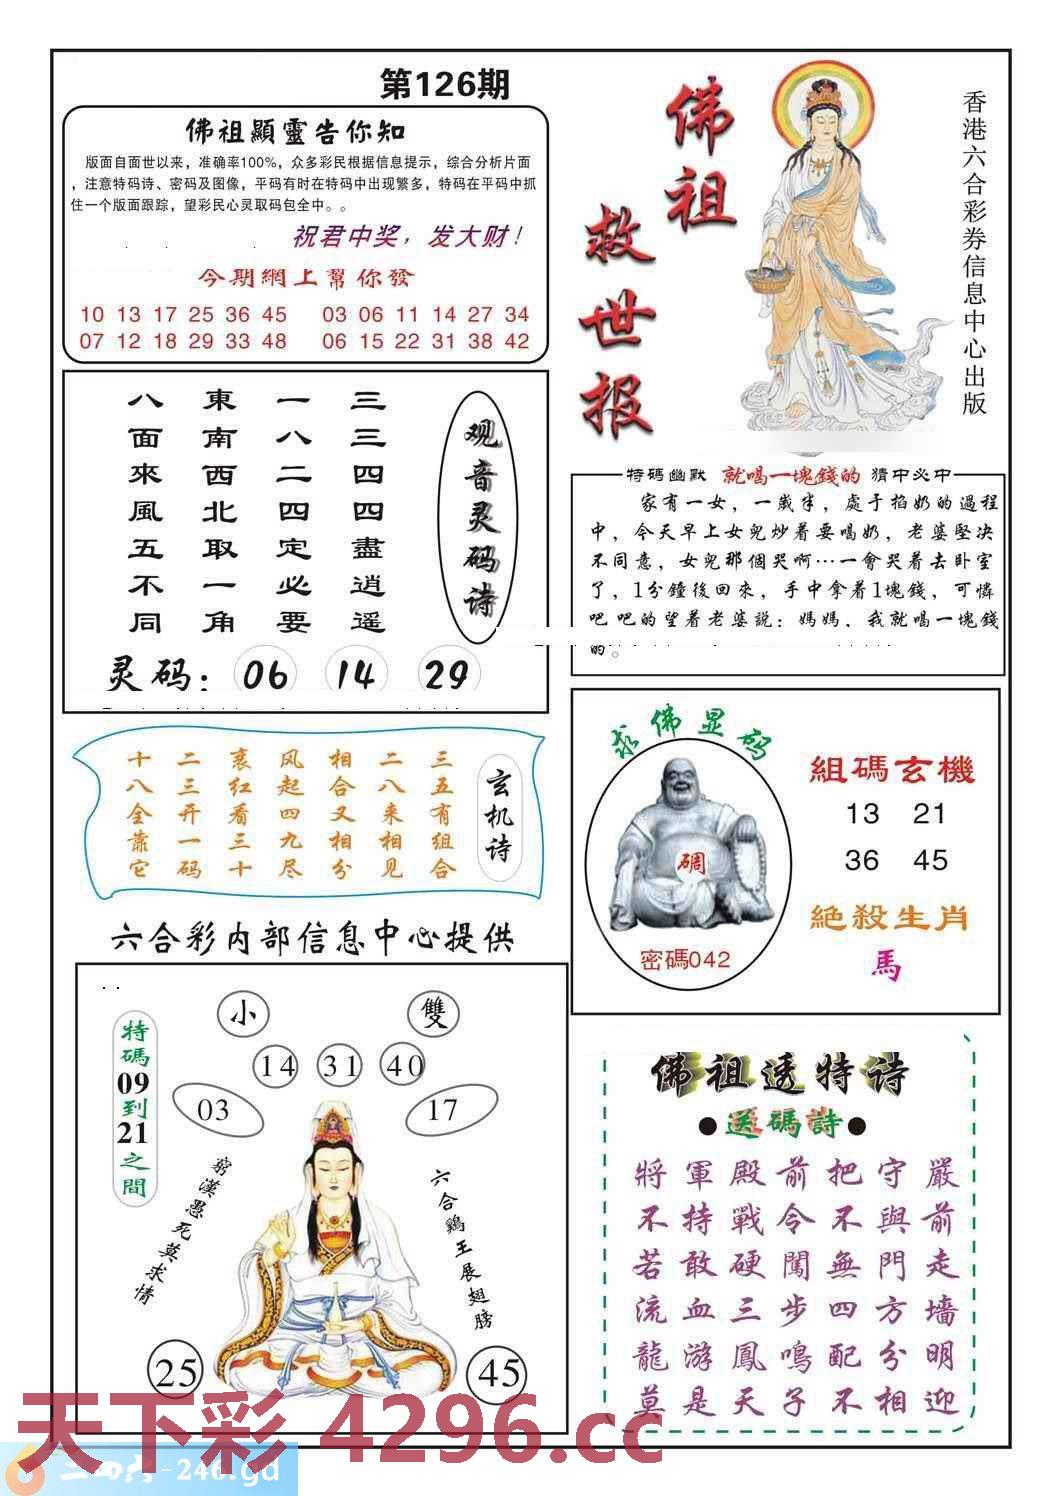 第126期
佛祖顯靈告你知
版面自面世以来，准确率100%，众多彩民根据信息提示，综合分析片面
，注意特码诗、密码及图像，平码有时在特码中出现繁多，特码在平码中抓
住一个版面跟踪，望彩民心灵取码包全中。。
祝君中奖，发大财！
今期網上幫你發
10 13 17 25 36 45 03 06 11 14 27 34
07 12 18 29 33 48 06 15 22 31 38 42
佛祖
救世报
香港六合彩券信息中心出版
观音灵码诗
三三四四盡逍遥
一八二四定必要
東南西北取一角
八面來風五不同
灵码：06 14 29
特碼幽默 就喝一塊錢的 猜中必中
家有一女，一歲半，處于掐奶的過程
中，今天早上女兒炒着要喝奶，老婆堅决
不同意，女兒那個哭啊…一會哭着去卧室
了，1分鐘後回來，手中拿着1塊錢，可憐
吧吧的望着老婆説：媽媽，我就喝一塊錢
的。
玄机诗
三五有组合
二八来相见
相合又相分
风起四九尽
裹红看三十
二三开一码
十八全靠它
求佛显码
碉
密碼042
組碼玄機
13 21
36 45
絕殺生肖
馬
六合彩内部信息中心提供
特碼09到21之間
小 雙
14 31 40
03 17
窮漢愚死莫求情
六合鷄王展翅膀
25 45
佛祖透特诗
●送碼詩●
將軍殿前把守嚴
不持戰令不與前
若敢硬闖無門走
流血三步四方墻
龍游鳳鳴配分明
莫是天子不相迎
天下彩 4296.cc
二四六-246.gd